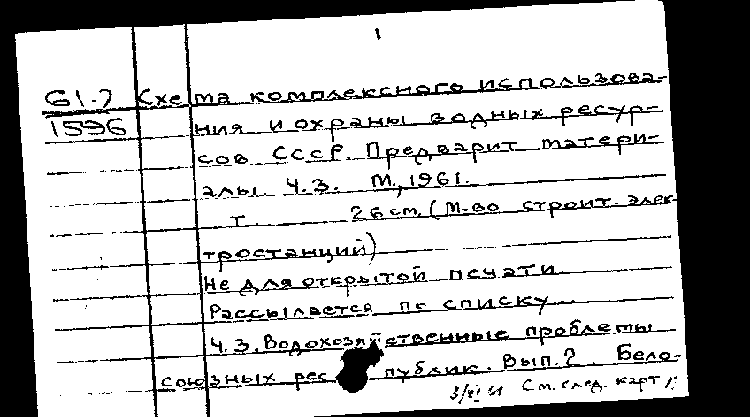 1
61-7 Схема комплексного использова-
1596 ния и охраны водных ресур-
сов СССР. Предварит матери-
алы Ч.3. М., 1961.
т. 26 см. (М-во строит. элек-
тростанций)
Не для открытой печати
Рассылается по списку
Ч.3. Водохозяйственные проблемы
союзных рес публик. Вып. 2. Бело-
См. след. карт